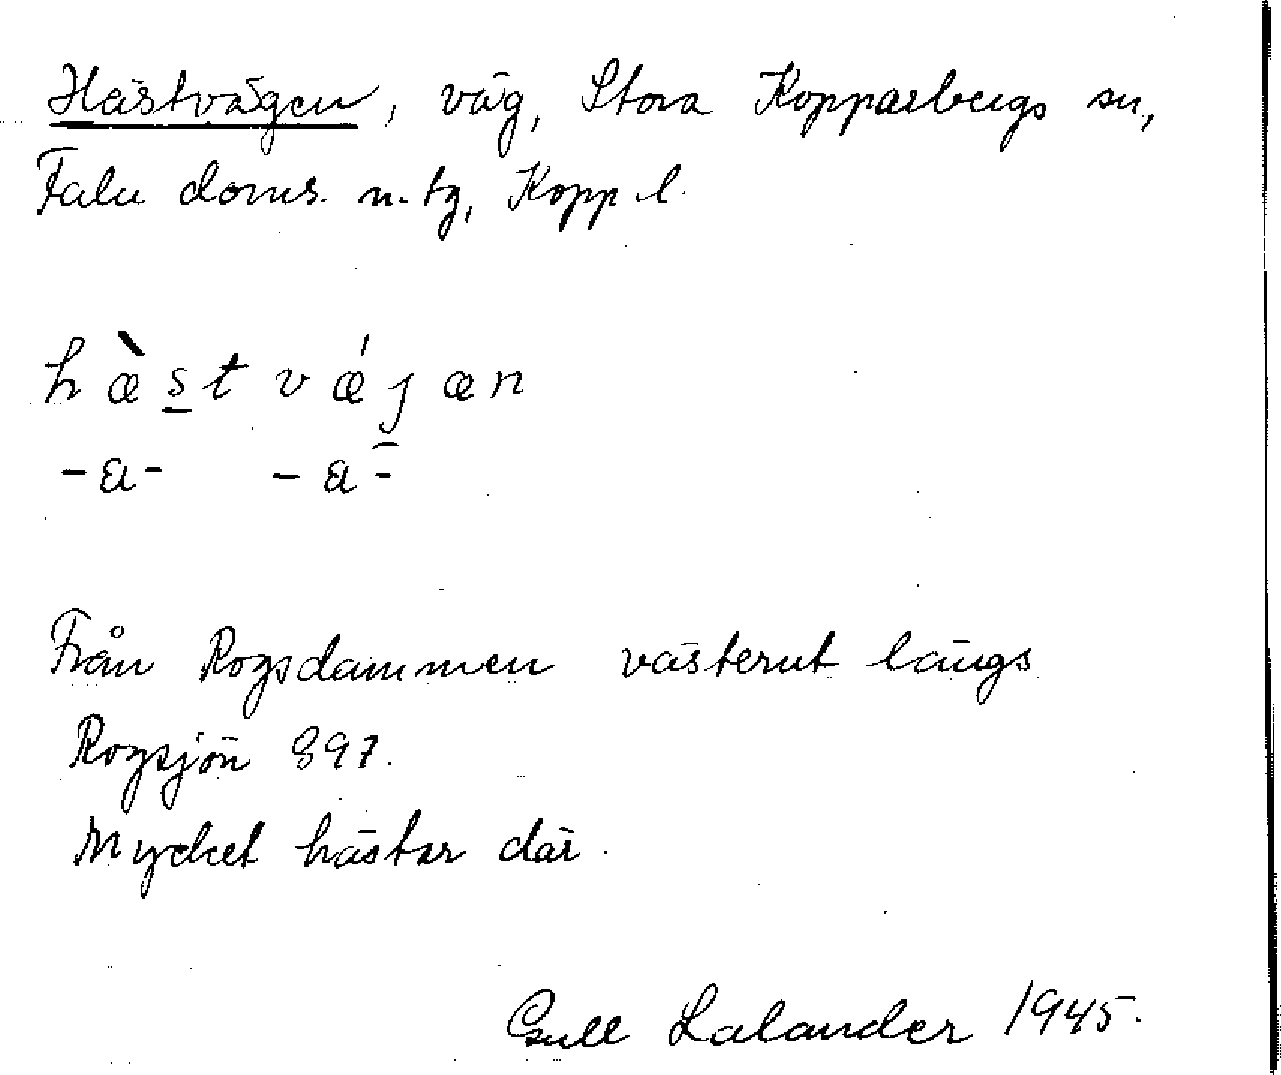 Hästvägen, väg, Stora Kopparbergs sn,
Falu doms. n. tg, Kopp l.
hæ̀s̲t vǽjæn
-a- -a-
Från Rogsdammen västerut längs
Rogsjön 897.
Mycket hästar där.
Gull Lalander 1945.